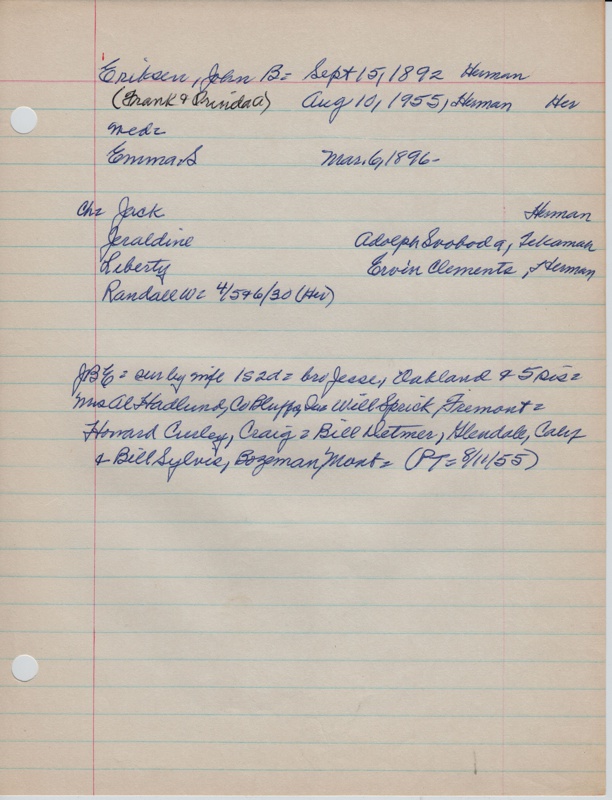 Eriksen, John B= Sept 15, 1892 Herman
(Frank & Prinda a) Aug 10, 1955, Herman Her
med=
Emma, S Mar. 6, 1896-
Ch= Jack Herman
Jeraldine Adolph Svoboda, Tekamah
Liberty Ervin Clements, Herman
Randall W= 4/5&6/30 (Her)
JBE= sur by wife 1s2d= bro Jesse, Oakland & 5 sis=
Mrs Al Hadlund, Co Bluffs, Will Sprick, Fremont=
Howard Curley, Craig= Bill Detmer, Glendale, Calif
& Bill Sylvis, Bozeman, Mont= (PT= 8/11/55)